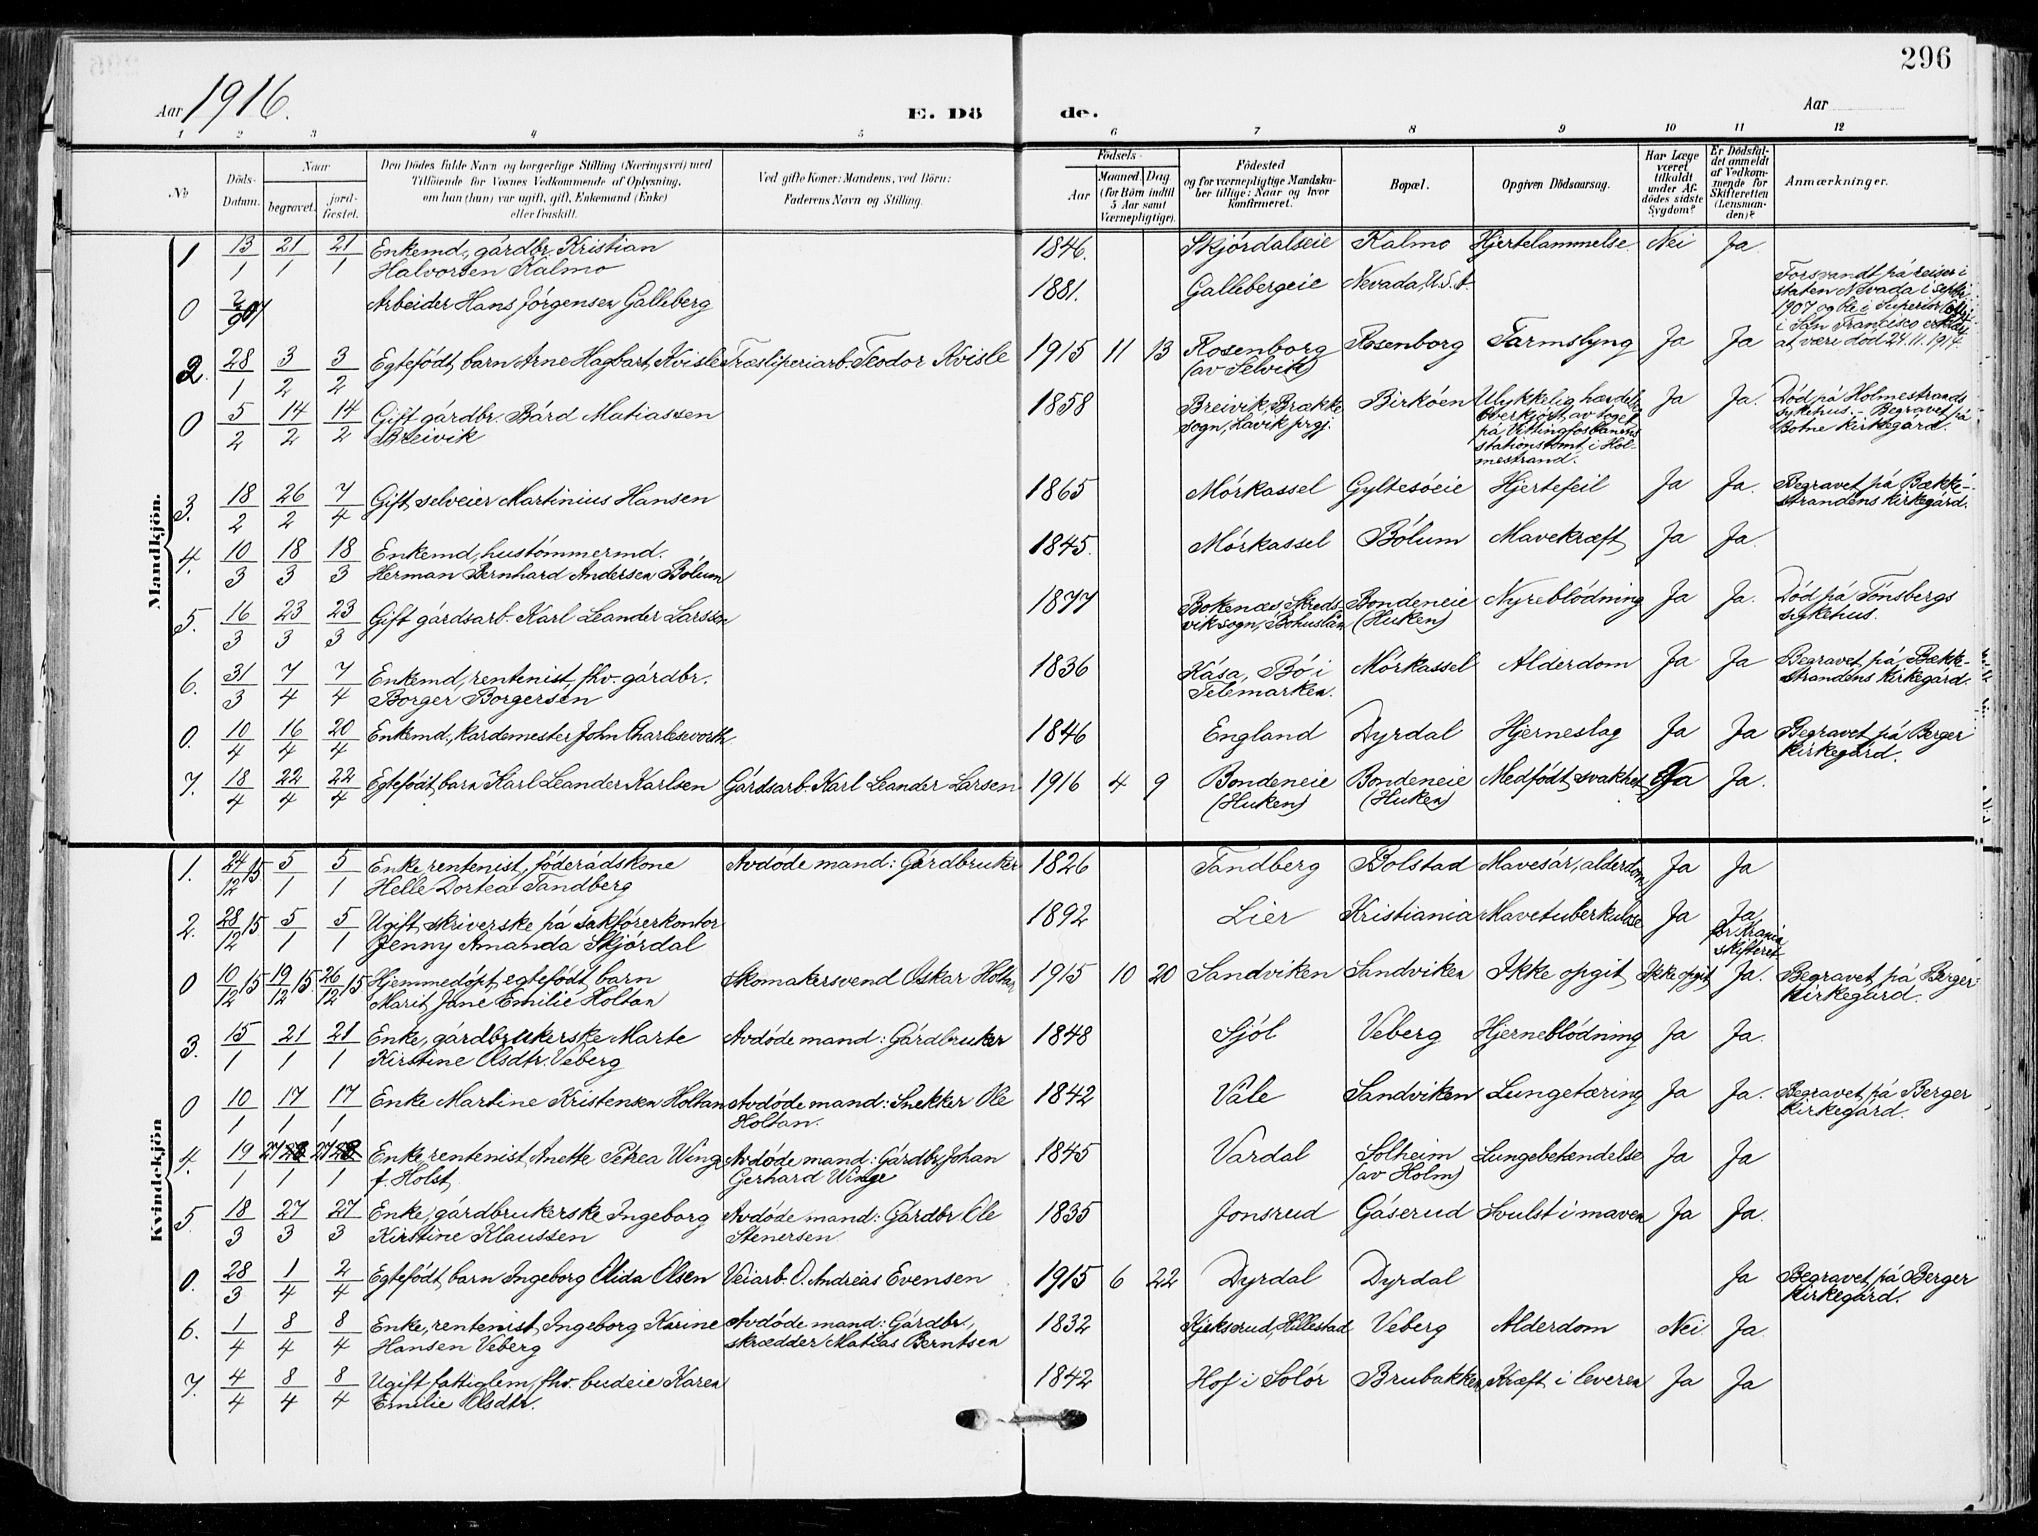 296
Aar 1916.
E. Dö de.
Aar
1 2 3 4 5 6 7 8 9 10 11 12
No
Döds-Datum.
Naar
begravet.
jord-fæstet.
Den Dödes fulde Navn og borgerlige Stilling (Næringsvei) med
Tilföiende for Voxnes Vedkommende af Oplysning,
om han (hun) var ugift, gift, Enkemand (Enke)
eller fraskilt.
Ved gifte Koner: Mandens, ved Börn:
Faderens Navn og Stilling.
Födsels-
Aar
Maaned. Dag.
(for Börn indtil
5 Aar samt
Værnepligtige).
Födested
og for værnepligtige Mandska-
ber tillige: Naar og hvor
konfirmeret.
Bopæl.
Opgiven Dödsaarsag.
Har Læge
været
tilkaldt
under Af-
dödes sidste
Sygdom?
Er Dödsfal-
det anmeldt
af Vedkom-
mende for
Skifteretten
(Lensman-
den)?
Anmærkninger.
Mandkjön.
1 13/1 21/1 21/1 Enkemd., gårdbr. Kristian 1846. Skjördalseie Kalmo Hjertelammelse Nei Ja
Halvorsen Kalmo
0 2/9 07 Arbeider Hans Jörgensen Galleberg 1881. Gallebergeie Nevada, U.S.A. Forsvandt på reiser i
staten Nevada i septbr.
1907 og ble i Superior
i San Francisco erklært
at være död 21.11.1914.
2. 28/1 3/2 3/2 Egtefödt barn Arne Hagbart Kvisle Træsliperiarb. Teodor Kvisle 1915 11 13 Rosenborg Rosenborg Tarmslyng Ja Ja
(av Selvik)
0 5/2 14/2 14/2 Gift gårdbr. Bård Matiassen 1858 Breivik, Brække Birköen Ulykkelig hændelse Ja Ja. Död på Holmestrands
Breivik sogn, Lavik prgj. Overkjört av toget sykehus. - Begravet på
på Vittingfosbanens Botne kirkegård.
stationstomt i Hol-
mestrand.
3. 18/2 26/2 7/4 Gift selveier Martinius Hansen 1865 Mörkassel Gyltesöeie Hjertefeil Ja Ja. Begravet på Bække-
strandens kirkegård.
4. 10/3 18/3 18/3 Enkemd., hustömmermd. 1845. Mörkassel Bölum Mavekræft Ja Ja.
Herman Bernhard Andersen Bölum
5. 16/3 23/3 23/3 Gift gårdsarb. Karl Leander Larsson 1877 Bokenæs, Skreds- Bondeneie Nyreblödning Ja Ja. Död på Tönsbergs
viksogn, Bohuslän (Huken) sykehus.
6. 31/3 7/4 7/4 Enkemd, rentenist, fhv. gårdbr. 1836 Kåsa, Bö i Mörkassel Alderdom Ja Ja Begravet på Bække-
Borger Borgersen Telemarken. strandens kirkegård.
0. 10/4 16/4 20/4 Enkemd., kardemester John Charlesworth 1846 England Dyrdal Hjerneslag Ja Ja Begravet på Berger
kirkegård.
7. 18/4 22/4 22/4 Egtefödt barn Karl Leander Karlsen Gårdsarb. Karl Leander Larsen 1916 4 9 Bondeneie Bondeneie Medfödt svakhet Ja Ja.
(Huken) (Huken)
Kvindekjön
1. 24/12 15 5/1 5/1 Enke, rentenist, föderådskone Avdöde mand: Gårdbruker 1826 Tandberg Bolstad Mavesår, alderdom Ja Ja
Helle Dortea Tandberg
2. 28/12 15 5/1 5/1 Ugift skriverske på sakförerkontor 1892 Lier Kristiania Mavetuberkulose Ja Ja,
Jenny Amanda Skjördal for Krania
skifteret
0 10/12 15 19/12 15 26/12 15 Hjemmedöpt egtefödt barn Skomakersvend Oskar Holtan 1915 10 20 Sandviken Sandviken Ikke opgit Ikke opgit Ja. Begravet på Berger
Marit Jane Emilie Holtan kirkegård.
3. 15/1 21/1 21/1 Enke, gårdbrukerske Marte Avdöde mand: Gårdbruker 1848 Sjöl Veberg Hjerneblödning Ja Ja.
Kirstine Olsdtr. Veberg
0 10/1 17/1 17/1 Enke Martine Kristensen Holtan Avdöde mand: Snekker Ole 1842 Våle Sandviken Lungetæring Ja Ja. Begravet på Berger
Holtan. kirkegård.
4. 19/1 27/1 27/1 Enke, rentenist, Anette Petrea Winge Avdöde mand: Gårdbr. Johan 1845 Vardal Solheim Lungebetændelse Ja Ja
f. Holst Gerhard Winge (av Holm)
5. 18/3 27/3 27/3 Enke, gårdbrukerske Ingeborg Avdöde mand: Gårdbr. Ole 1835 Jonsrud Gåserud Svulst i maven Ja Ja.
Kirstine Klaussen Stenersen
0. 28/3 1/4 2/4 Egtefödt barn Ingeborg Olida Olsen Veiarb. O. Andreas Evensen 1915 6 22 Dyrdal Dyrdal Ja Begravet på Berger
kirkegård.
6. 1/4 8/4 8/4 Enke, rentenist, Ingeborg Karine Avdöde mand: Gårdbr., 1832 Kjekserud, Hillestad Veberg Alderdom Nei Ja
Hansen Veberg skrædder Matias Berntsen
7. 4/4 8/4 8/4 Ugift fattiglem, fhv. budeie Karen 1842 Hof i Solör Brubakken Kræft i leveren Ja Ja
Emilie Olsdtr.